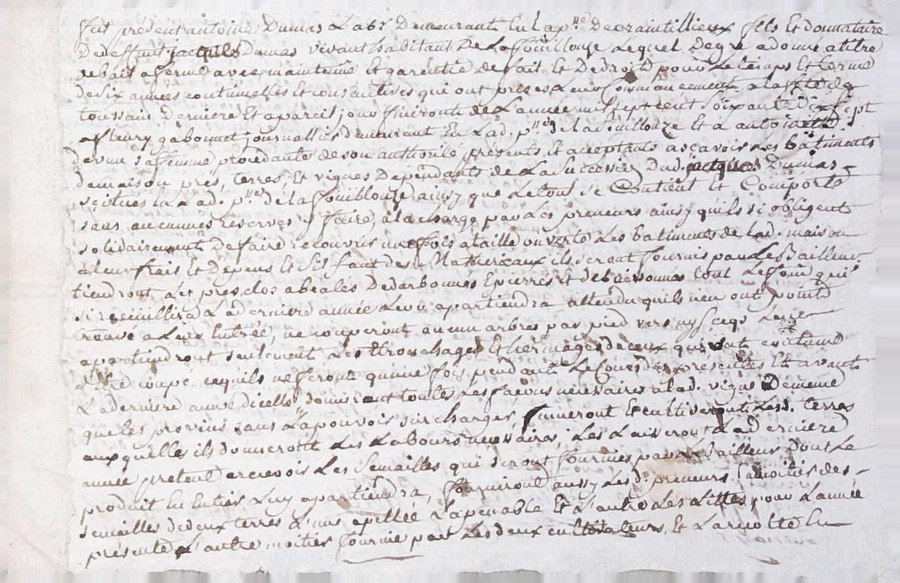 fut présent antoine Dumas Lab.r demeurant En la p.sse de craintillieux fils et donnataire
De deffunt jacques Dumas vivant habitant De La fouillouze Lequel De gré a donné a titre
de bail a ferme avec maintenue et garentie de fait et De droit pour Le temps et terme
de six années continuelles et consecutives qui ont pris Leur Commencement a la fête de
toussain derniere et a pareil jour finiront de L'année mil sept cent soixante Dix sept
a fleury gabonnet journallier demeurant En Lad. p.sse de la fouillouze et a antoinette
sa femme procedante de son authorité, presents et acceptants a sçavoir Les batiments
de maison prés, terres, et vignes Dependants de La Succession dud. jacques Dumas
scitués En Lad. p.sse de la fouillouze ainsy que Le tout Se Contient Et Comporte
sans aucunnes reserves faire, a la charge par Les preneurs ainsy qu'ils s'i obligent
solidairement de faire recouvrir une fois a taille ouverte Les batiments de lad. maison
a leur frais et depens et s'il faut des Mathereaux ils seront fournis par Le Bailleur
tiendront Les prés clos
si recuillira La derniere année Luy apartiendra attendu qu'ils n'en ont point
trouvé a Leur Entrée, ne couperont aucun arbres par pied vers ny secqs Leur
apartiendront seulement Les tronchages Et hermages de ceux qui sont en coutume
D'être coupé cequ'ils ne feront qu'une fois pendant Le Cours des presentes Et avant
La derniere année D'icelles donneront toutes Les façons necessaires a lad. vigne De meme
que les provins sans La pouvoir surcharger, fumeront Et cultiveront Les d. terres
aux quelles ils donneront Les Labours necessaires, Les Laisseront La derniere
année pretent recevoir Les semailles qui seront fournies par Le Bailleur Dont Le
produit En Entier Luy apartiendra, fourniront aussy Les d. preneurs La moitié des
semailles de deux terres L'une apellée La penable et L'autre Les Littes pour L'année
presente L'autre moitié fournie par Les deux cultivateurs, Et La recolte En